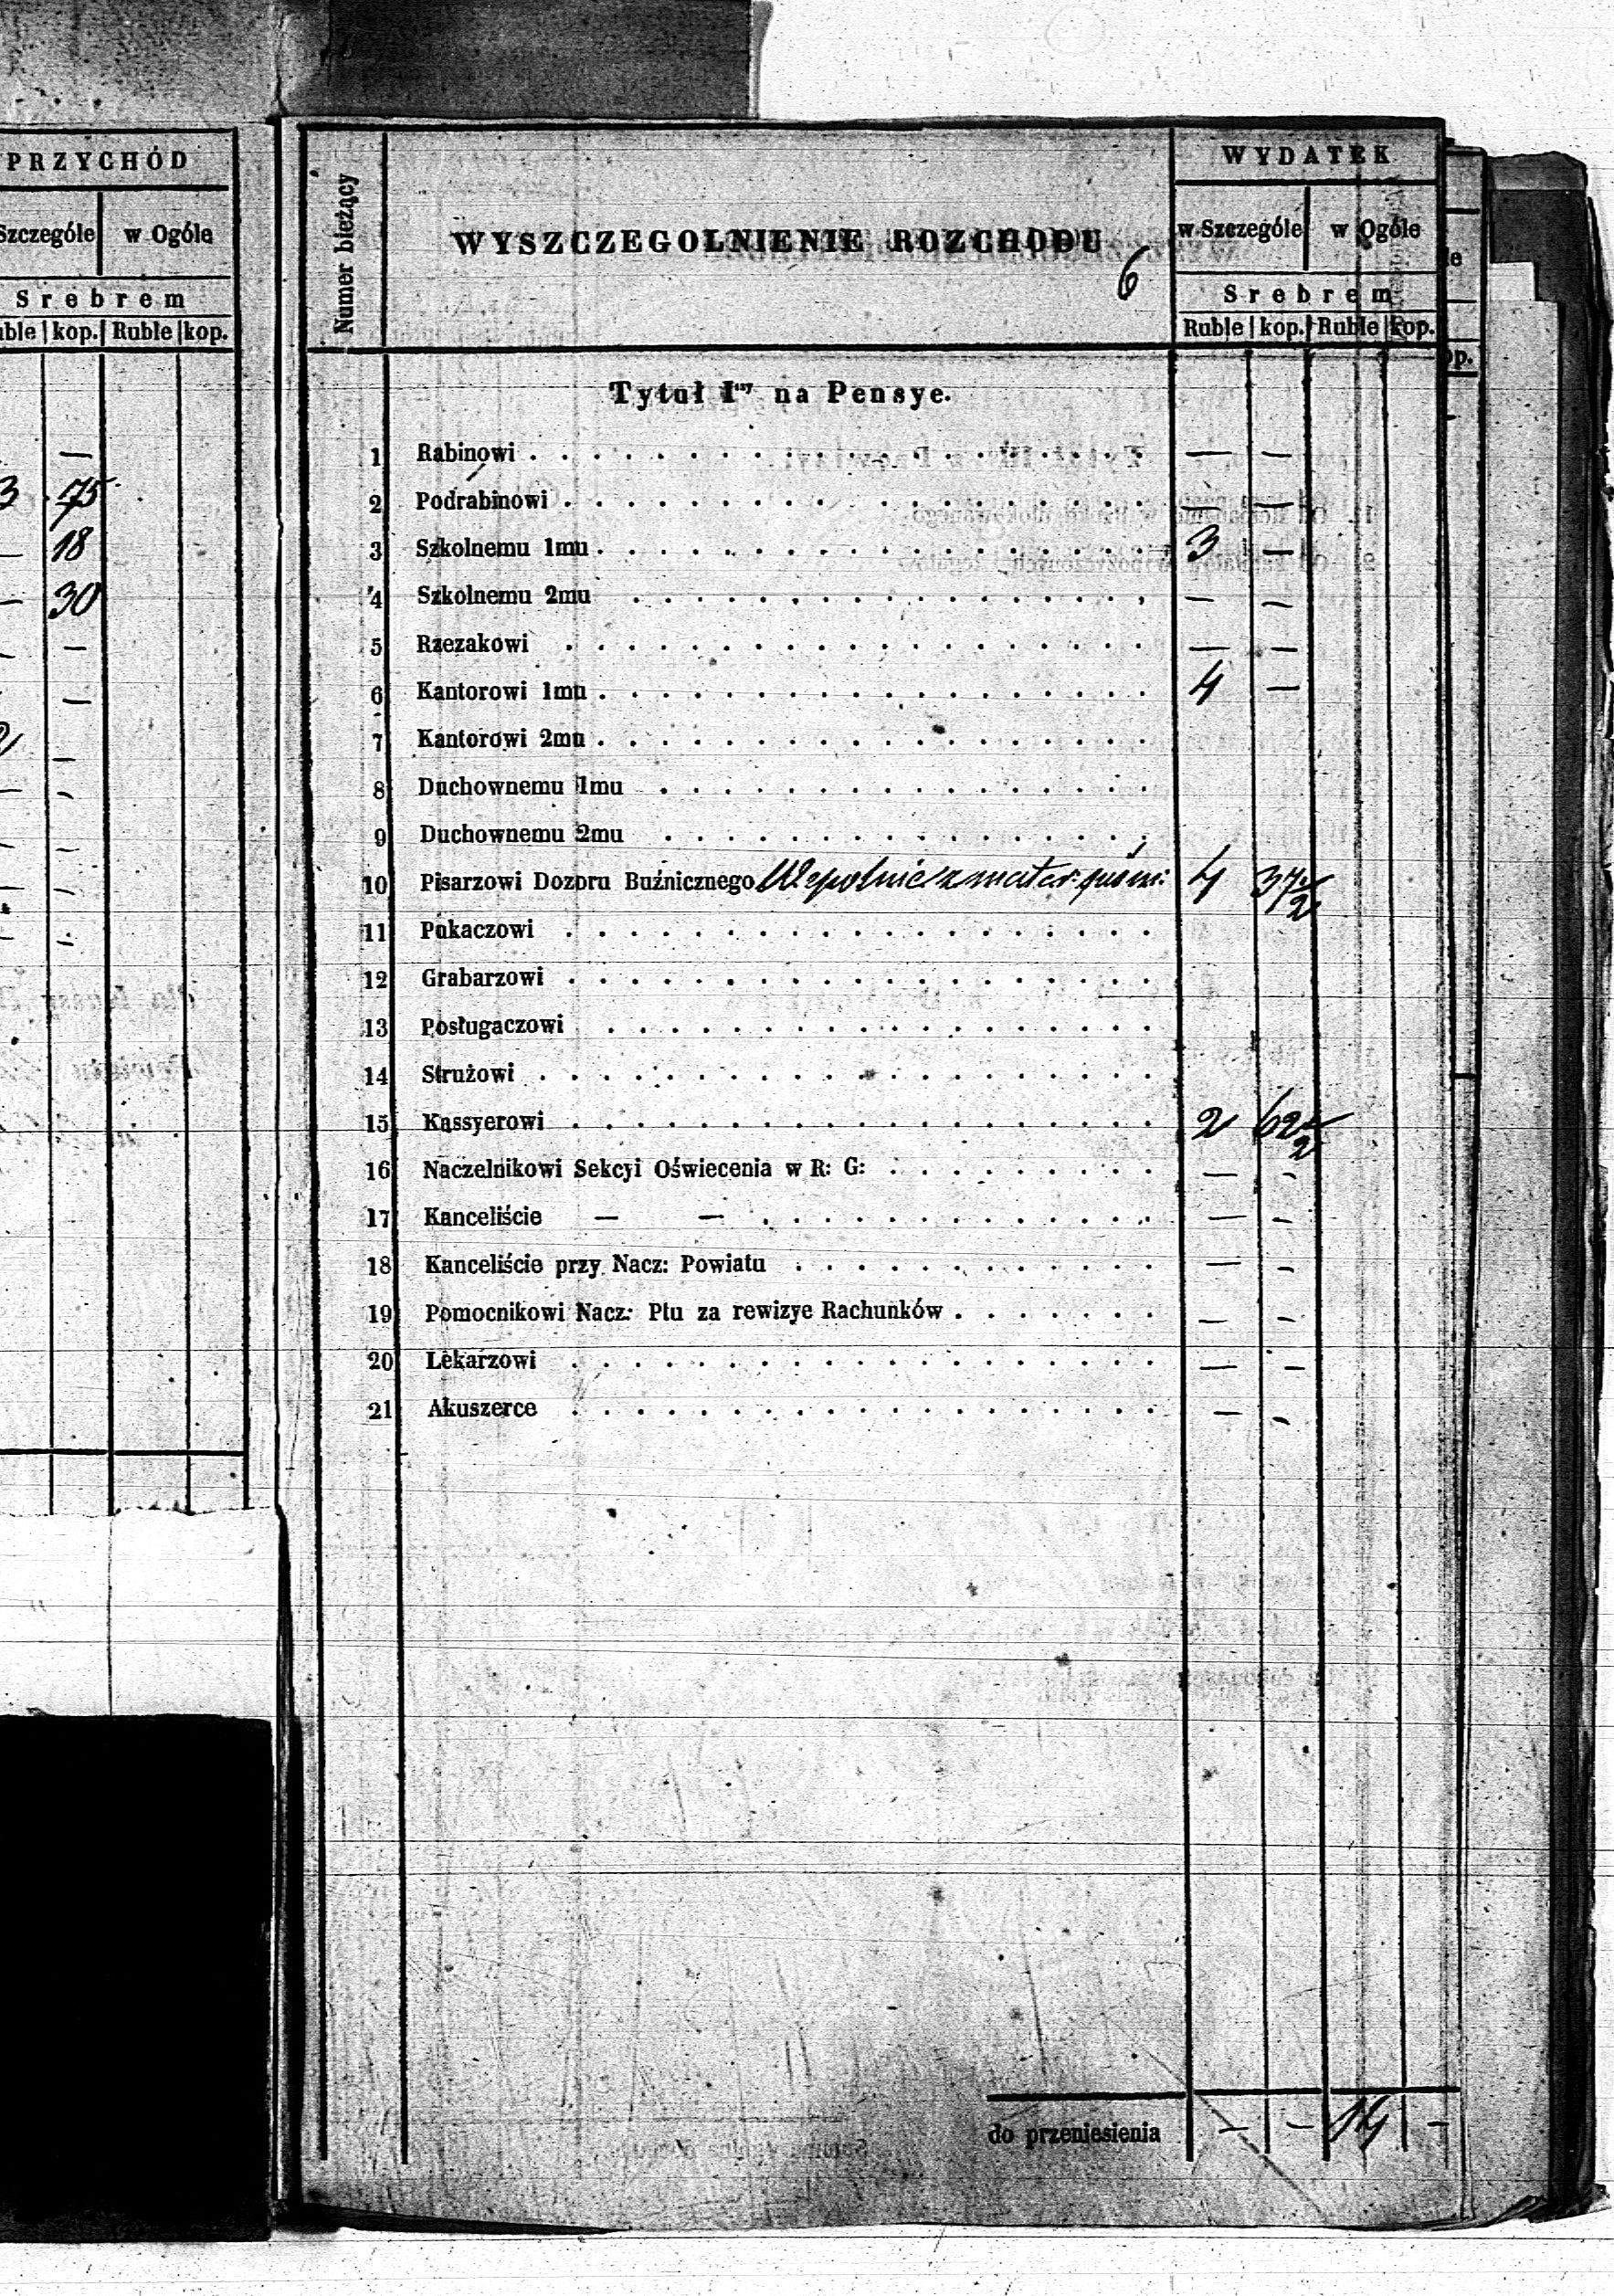 PRZYCHÓD
Szczególe w Ogóle
Srebrem
kop. Ruble kop.
—
3 75
— 18
— 30
— —
—
2 —
— —
— —
— —
— —
Numer bieżący
WYSZCZEGOLNIENIE ROZCHODU
6
WYDATEK
w Szczególe w Ogóle
Srebrem
Ruble kop. Ruble kop.
Tytuł Iszy na Pensye.
1 Rabinowi . . . . — —
2 Podrabinowi . . . . — —
3 Szkolnemu 1mu . . . . 3 —
4 Szkolnemu 2mu . . . . — —
5 Rzezakowi . . . . — —
6 Kantorowi 1mu . . . . 4 —
7 Kantorowi 2mu . . . .
8 Duchownemu 1mu . . . .
9 Duchownemu 2mu . . . .
10 Pisarzowi Dozoru Buźnicznego 4 37½
11 Pukaczowi . . . .
12 Grabarzowi . . . .
13 Posługaczowi . . . .
14 Strużowi . . . .
15 Kassyerowi . . . . 2 62½
16 Naczelnikowi Sekcyi Oświecenia w R: G: . . . . — —
17 Kanceliście — — . . . . — —
18 Kanceliście przy Nacz: Powiatu . . . . — —
19 Pomocnikowi Nacz: Ptu za rewizye Rachunków . . . . — —
20 Lekarzowi . . . . — —
21 Akuszerce . . . . — —
do przeniesienia — — 14 —